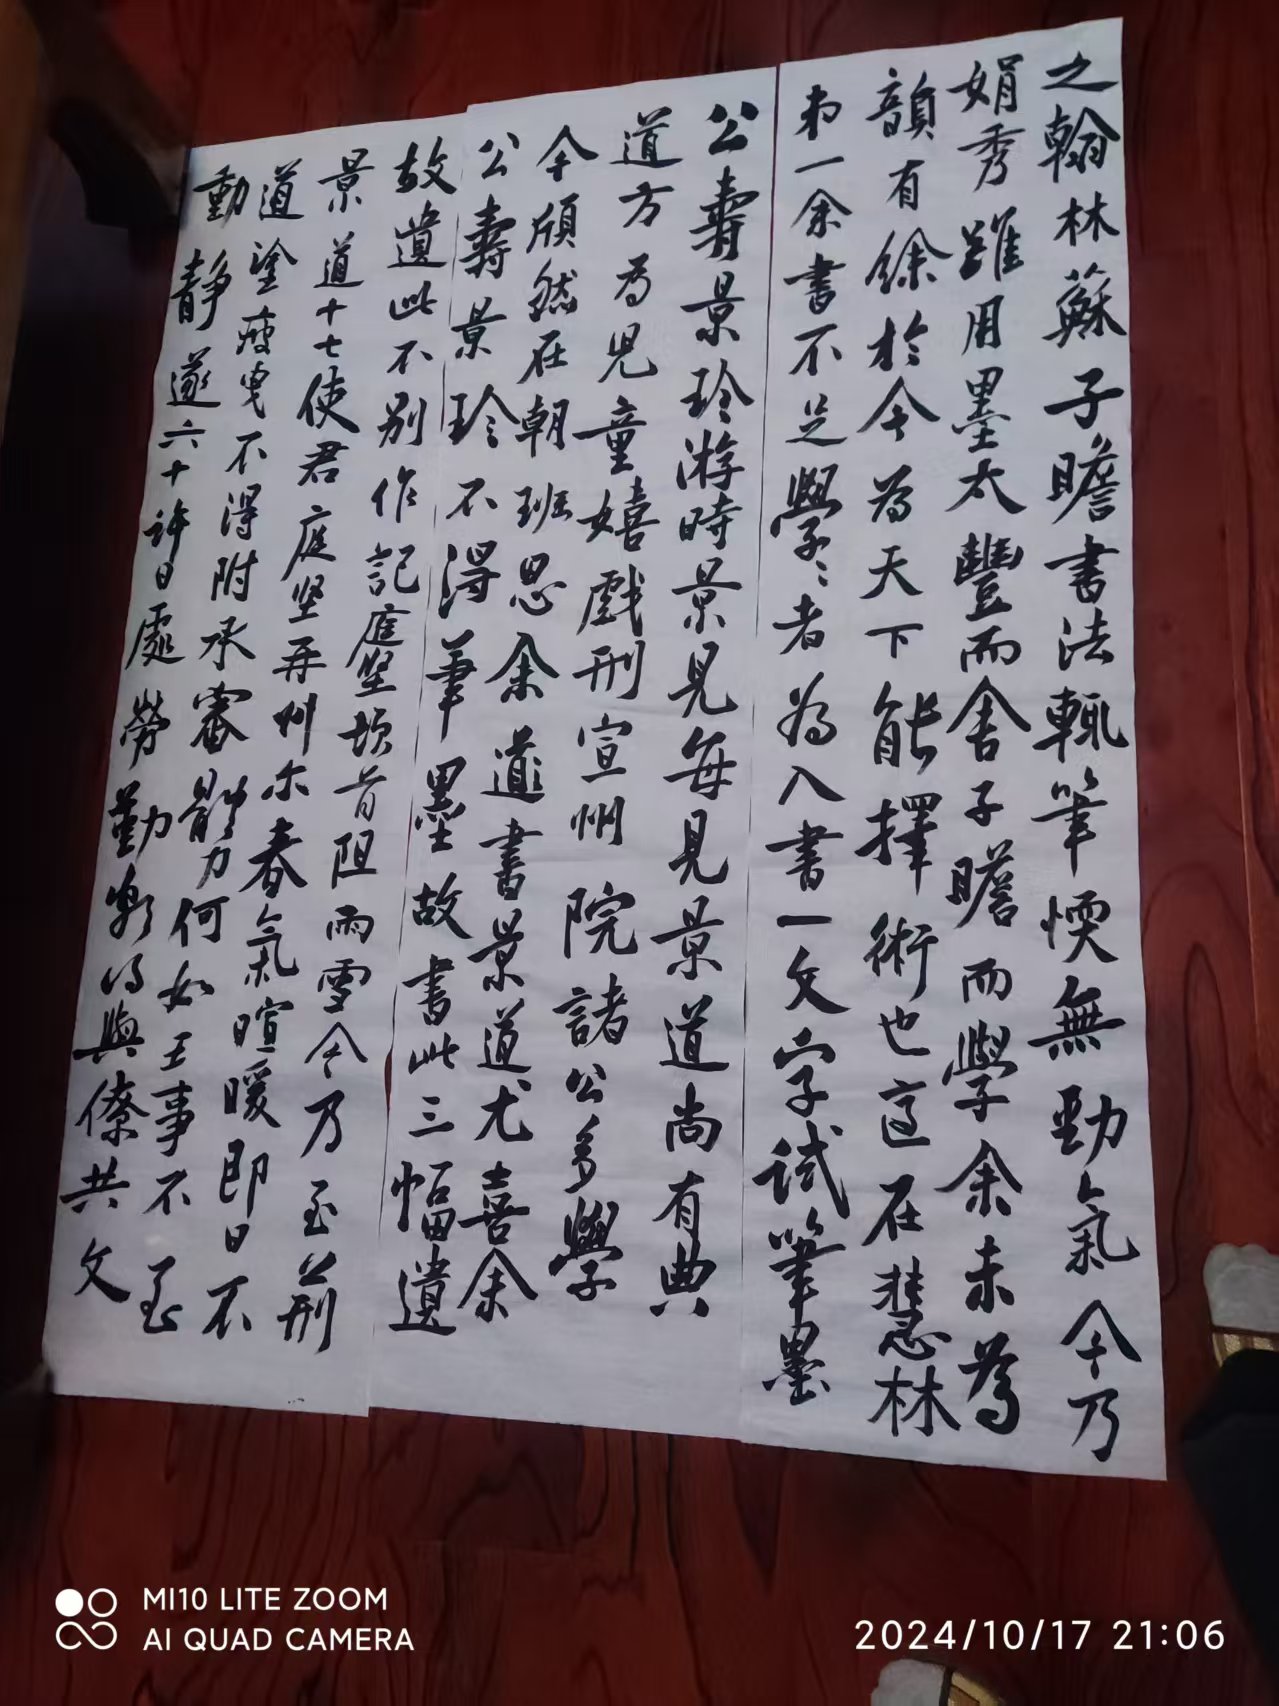 之翰林蘇子瞻書法輒筆愞無勁氣今乃
娟秀雖用墨太豐而舍子瞻而學余未為
韻有餘於今為天下能擇術也適在慧林
弟一余書不足學〻者為入書一文字試筆墨
公壽景珍游時景見每見景道尚有典
道方為児童嬉戲刑宣州院諸公多學
今頎然在朝班思余道書景道尤喜余
公壽景珍不得筆墨故書此三幅遺
故遺此不别作記庭堅頓首阻雨雪今乃至荊
景道十七使君庭堅再州尓春氣暄暖即日不
道塗疲曳不得附承審體力何如王事不至
動靜遂六十許日處勞勤想得與僚共文
MI10 LITE ZOOM
AI QUAD CAMERA
2024/10/17 21:06